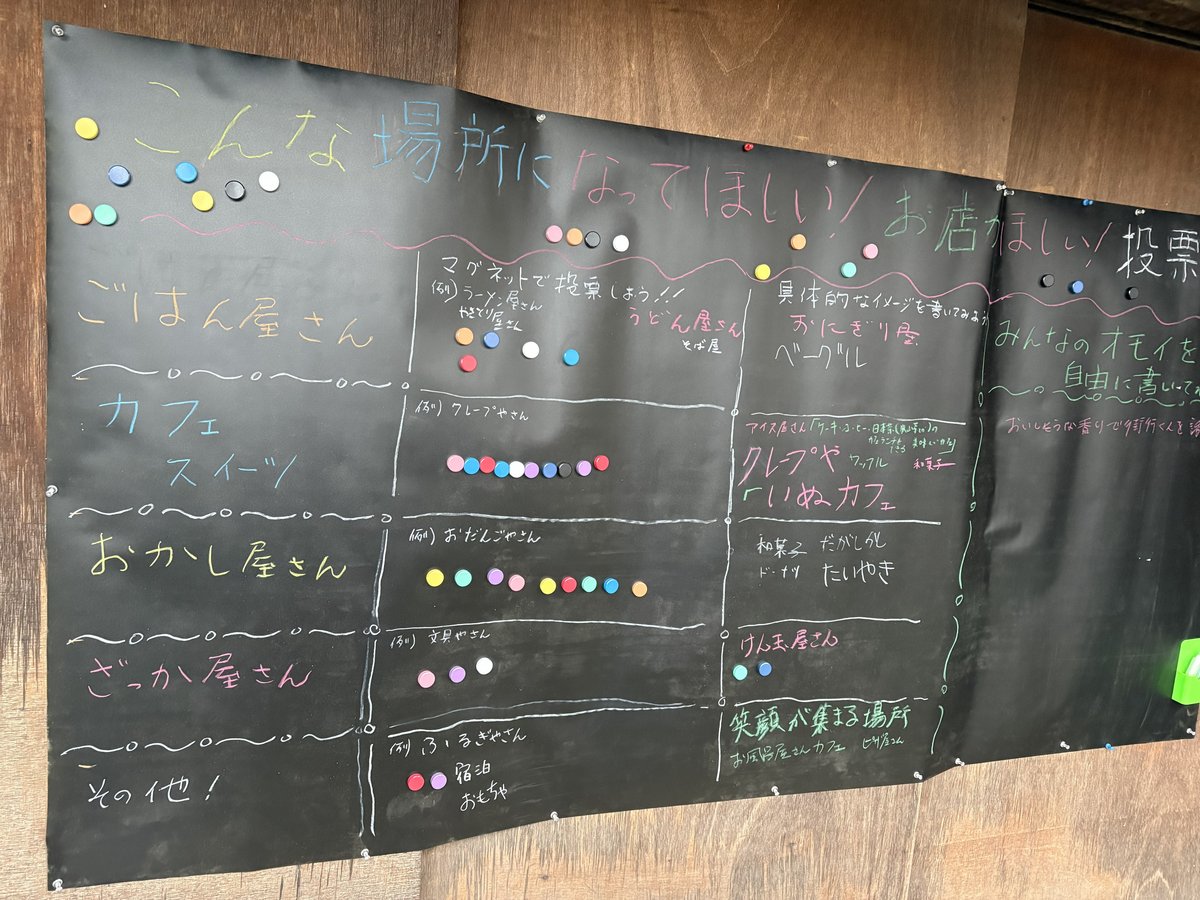 こんな場所になってほしい！お店がほしい！投票
ごはん屋さん
マグネットで投票しよう!!
例）ラーメン屋さん
やきとり屋さん
うどん屋さん
そば屋
具体的なイメージを書いてみよう
おにぎり屋
ベーグル
みんなのオモイを
自由に書いてね
カフェ
スイーツ
例）クレープやさん
アイス屋さん
クレープや
ワッフル
和菓子
いぬカフェ
おかし屋さん
例）おだんごやさん
和菓子 だがしかし
ドーナツ たいやき
ざっか屋さん
例）文具やさん
けん玉屋さん
その他！
例）ふるぎやさん
宿泊
おもちゃ
笑顔が集まる場所
お風呂屋さんカフェ
おいしそうな香りで街行く人を